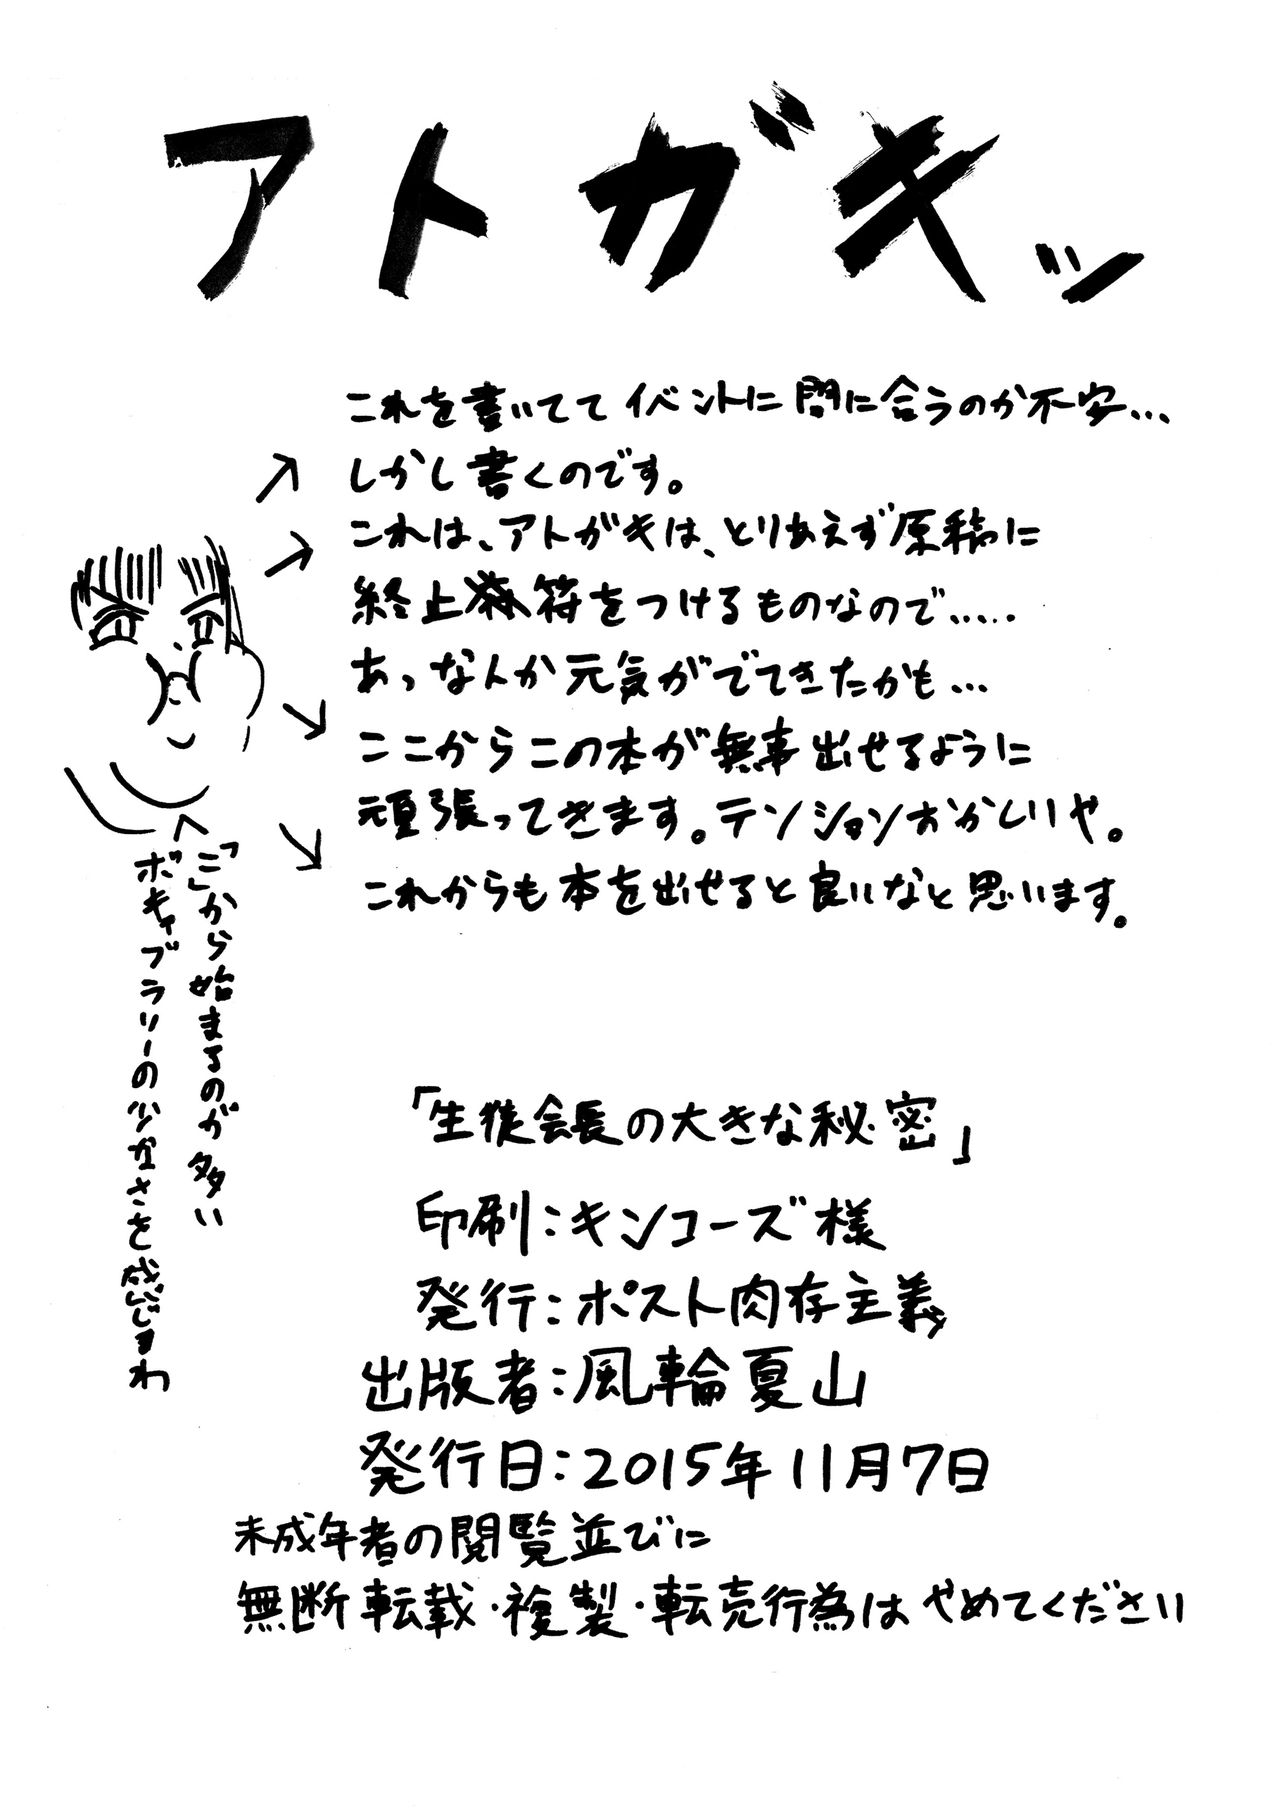 アトガキッ
これを書いてて イベントに 間に合うのか不安…
しかし書くのです。
これは、アトガキは、とりあえず原稿に
終止符をつけるものなので.....
あっなんか元気がでてきたかも…
ここからこの本が無事出せるように
頑張ってきます。テンションおかしいや。
これからも本を出せると良いなと思います。
「こ」から始まるのが多い
ボキャブラリーの少なさを感じますわ
「生徒会長の大きな秘密」
印刷:キンコーズ様
発行:ポスト肉存主義
出版者:風輪夏山
発行日:2015年11月7日
未成年者の閲覧並びに
無断転載・複製・転売行為はやめてください